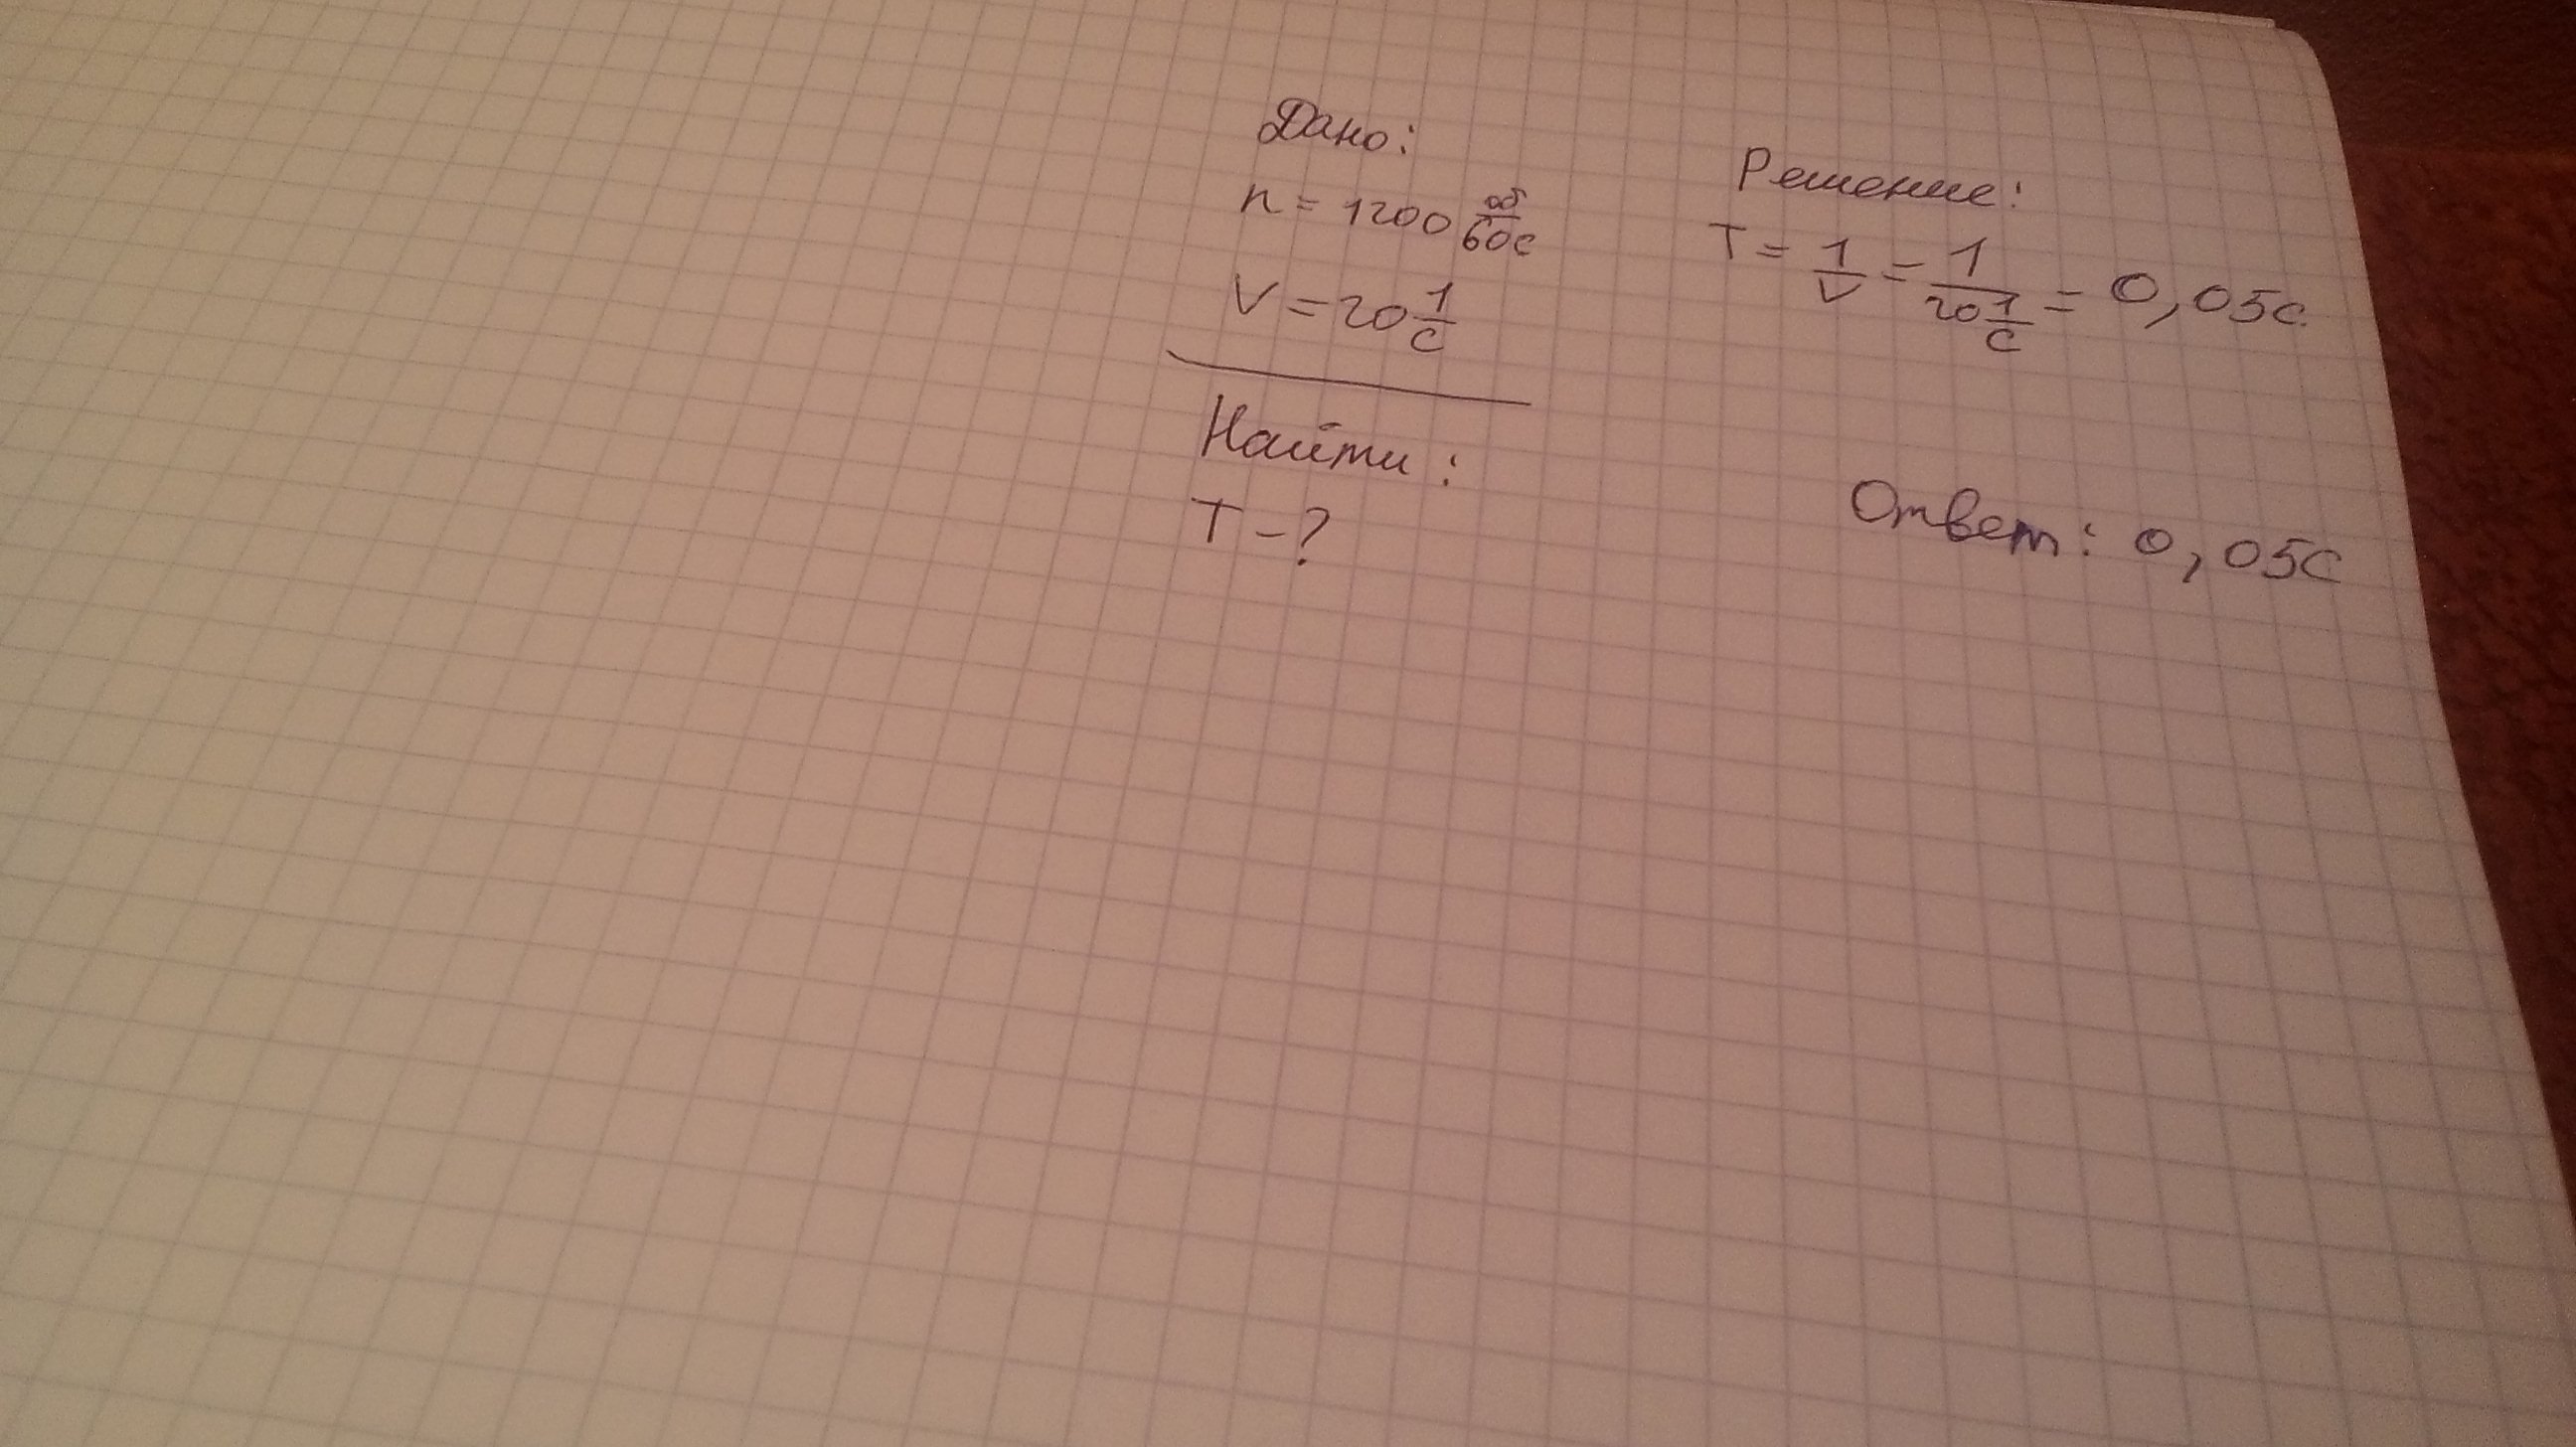 Дано:
n = 1200 об/60с
V = 20 1/с
Найти:
T - ?
Решение:
T = 1/V = 1/(20 1/с) = 0,05с
Ответ: 0,05с